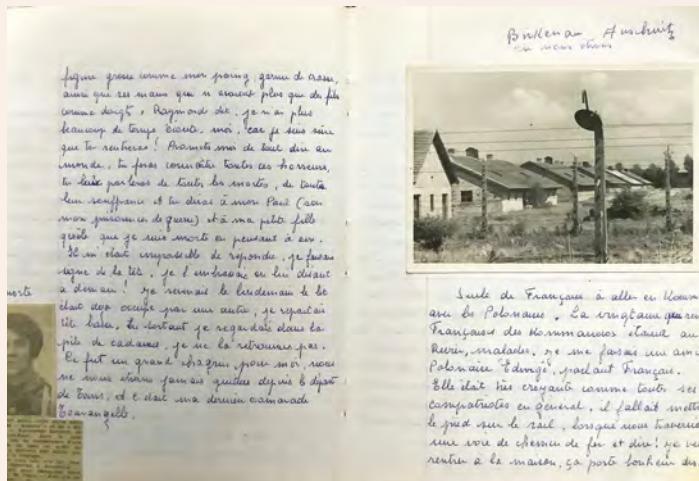 figure grosse comme mon poing, garnie de crasse,
ainsi que ses mains qui n'avaient plus que des fils
comme doigts, Raymonde dit, je n'ai plus
beaucoup de temps écoute, moi, car je suis sûre
que tu rentreras! Promets moi de tout dire au
monde, tu feras connaître toutes ces horreurs,
tu parleras de toutes les mortes, de toute
leur souffrance et tu diras à mon Paul (son
mari prisonnier de guerre) et à ma petite fille
que je suis morte en pensant à eux.
Il m'était impossible de répondre, je faisais
signe de la tête, je l'embrassais en lui disant
à demain! je revenais le lendemain le lit
était déjà occupé par une autre, je repartais
tête basse. En sortant je regardais dans la
pile de cadavres, je ne la retrouvais pas.
Ce fut un grand chagrin, pour moi, nous
ne nous étions jamais quittées depuis le départ
de Tours, et c'était ma dernière camarade
Tourangelle.
morte
Birkenau Auschwitz
où nous étions
Seule de Française à aller en Kom
avec les Polonaises. La vingtaine
Françaises des Kommandos étaient au
Revier, malades, je me faisais une amie
Polonaise Edwige, parlant Français.
Elle était très croyante comme toutes ses
compatriotes en général, il fallait mettre
le pied sur le rail, lorsque nous traversions
une voie de chemin de fer et dire! je ve
rentrer à la maison, ça porte bonheur